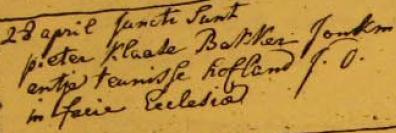 28 april Juncti Sunt
pieter Klaase Bakker Jonkm
entje teunisse hofland J. D.
in facie Ecclesiæ